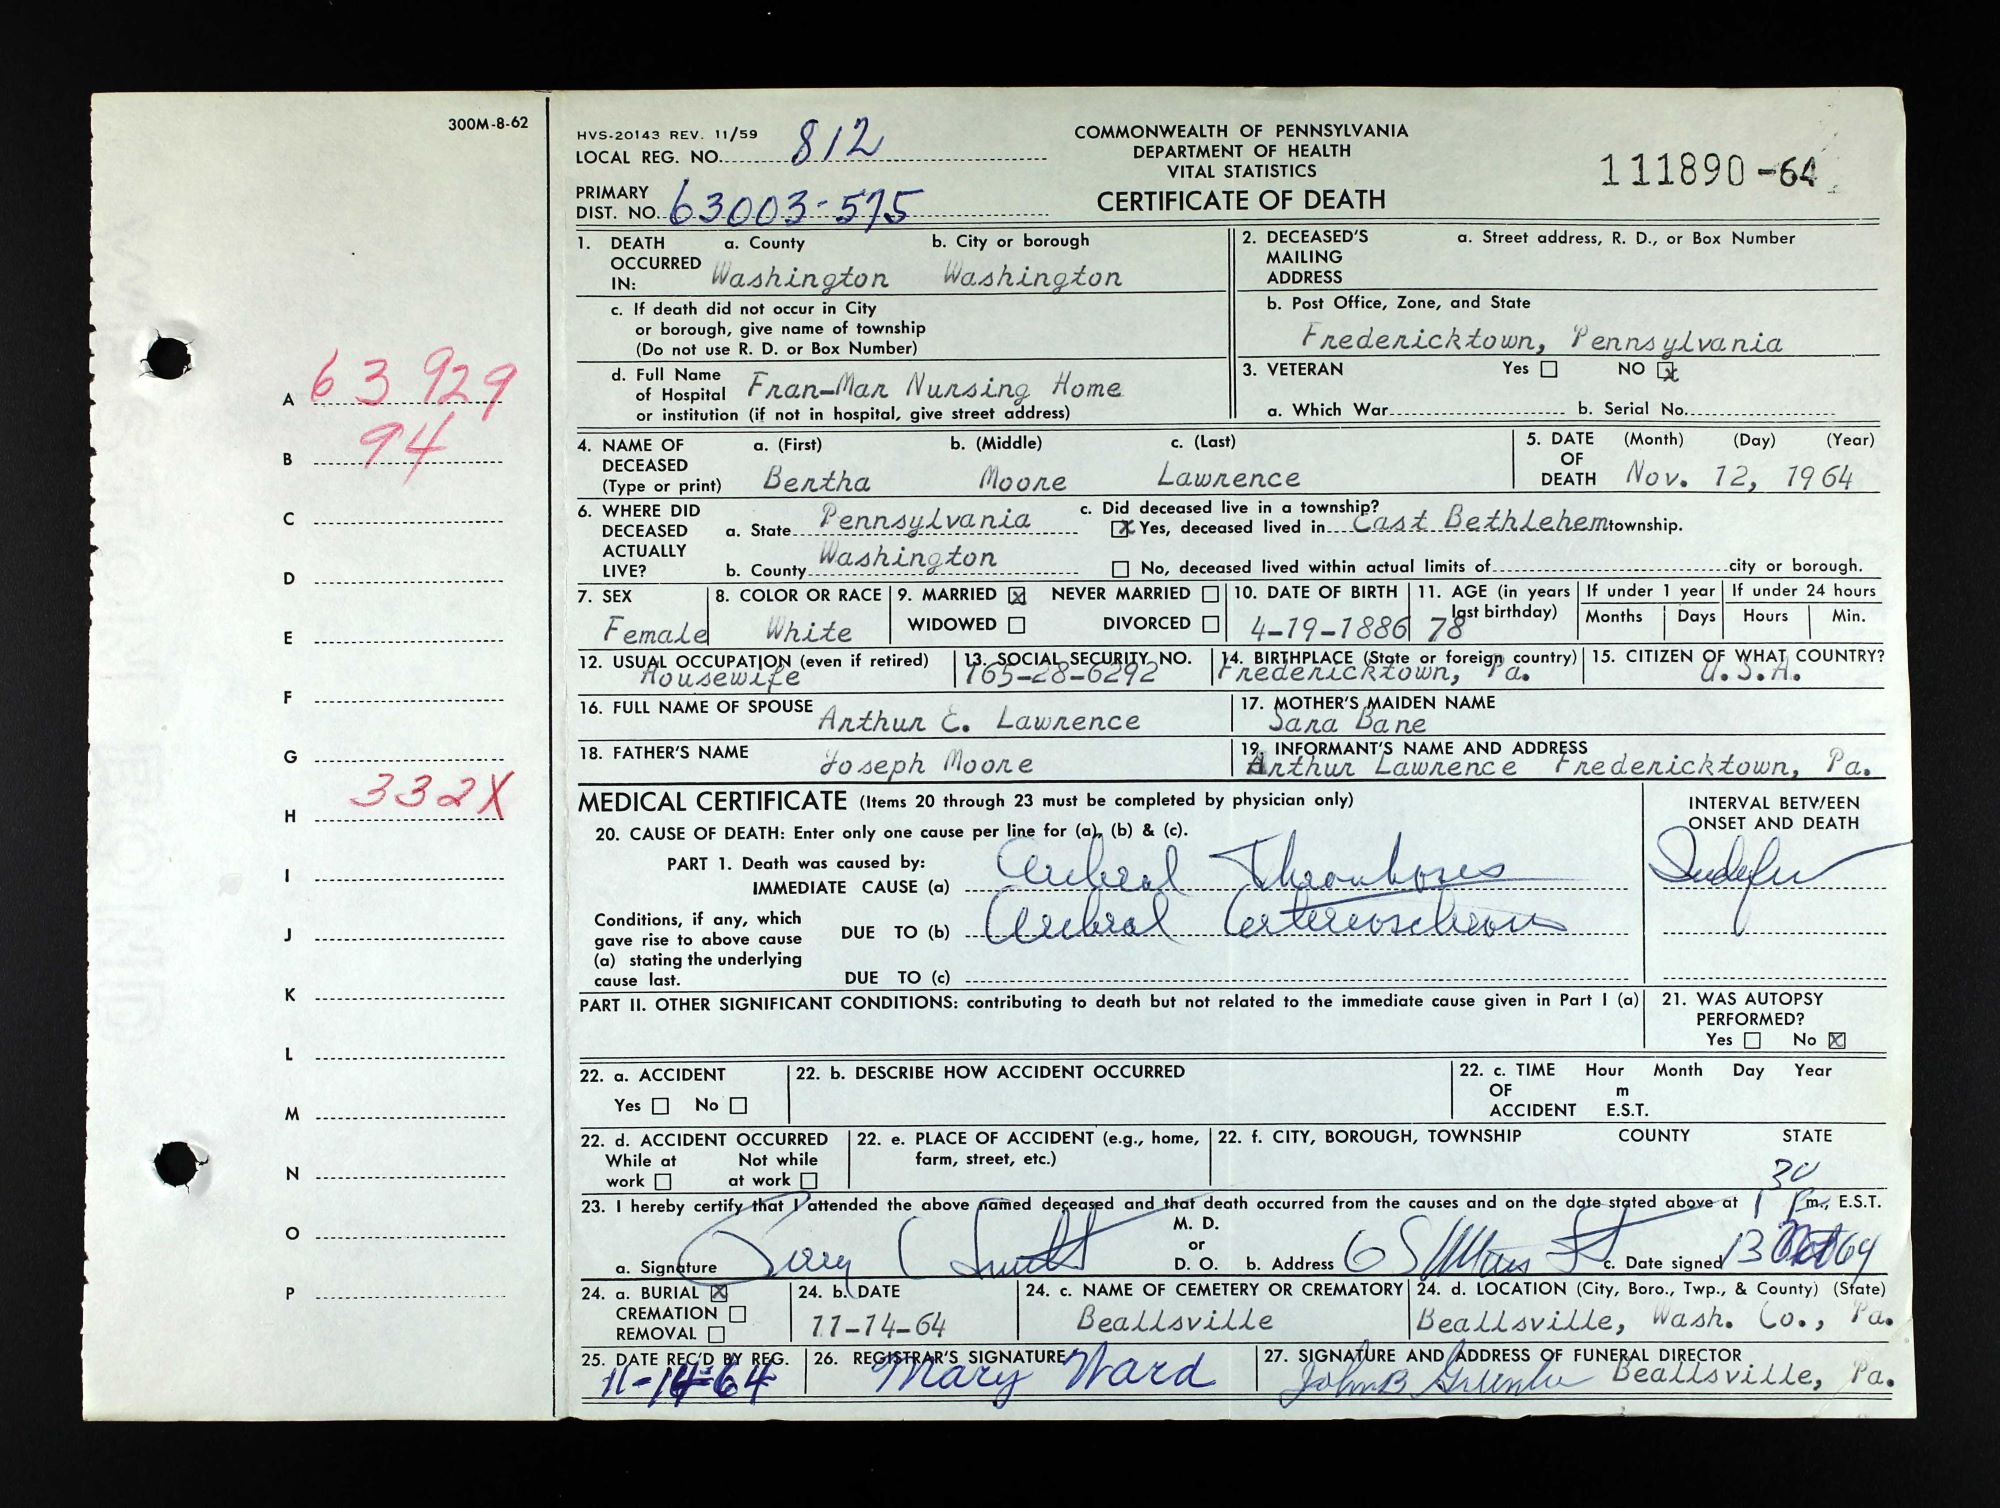 300M-8-62
HVS-20143 REV. 11/59
LOCAL REG. NO. 812
PRIMARY DIST. NO. 63003-575
COMMONWEALTH OF PENNSYLVANIA
DEPARTMENT OF HEALTH
VITAL STATISTICS
CERTIFICATE OF DEATH
111890-64
A 63 929
B 94
C
D
E
F
G
H 332X
I
J
K
L
M
N
O
P
1. DEATH OCCURRED IN: a. County Washington b. City or borough Washington
c. If death did not occur in City or borough, give name of township (Do not use R. D. or Box Number)
d. Full Name of Hospital or institution (if not in hospital, give street address) Fran-Mar Nursing Home
2. DECEASED'S MAILING ADDRESS a. Street address, R. D., or Box Number
b. Post Office, Zone, and State
Fredericktown, Pennsylvania
3. VETERAN Yes NO X
a. Which War b. Serial No.
4. NAME OF DECEASED (Type or print) a. (First) Bertha b. (Middle) Moore c. (Last) Lawrence
5. DATE OF DEATH (Month) (Day) (Year) Nov. 12, 1964
6. WHERE DID DECEASED ACTUALLY LIVE? a. State Pennsylvania
b. County Washington
c. Did deceased live in a township?
X Yes, deceased lived in East Bethlehem township.
No, deceased lived within actual limits of city or borough.
7. SEX Female
8. COLOR OR RACE White
9. MARRIED X NEVER MARRIED WIDOWED DIVORCED
10. DATE OF BIRTH 4-19-1886
11. AGE (in years last birthday) 78
If under 1 year Months Days
If under 24 hours Hours Min.
12. USUAL OCCUPATION (even if retired) Housewife
13. SOCIAL SECURITY NO. 165-28-6292
14. BIRTHPLACE (State or foreign country) Fredericktown, Pa.
15. CITIZEN OF WHAT COUNTRY? U.S.A.
16. FULL NAME OF SPOUSE Arthur E. Lawrence
17. MOTHER'S MAIDEN NAME Sara Bane
18. FATHER'S NAME Joseph Moore
19. INFORMANT'S NAME AND ADDRESS Arthur Lawrence Fredericktown, Pa.
MEDICAL CERTIFICATE (Items 20 through 23 must be completed by physician only)
INTERVAL BETWEEN ONSET AND DEATH
20. CAUSE OF DEATH: Enter only one cause per line for (a), (b) & (c).
PART 1. Death was caused by:
IMMEDIATE CAUSE (a) Cerebral Thromboses
Conditions, if any, which gave rise to above cause (a) stating the underlying cause last.
DUE TO (b) Cerebral Arteriosclerosis
DUE TO (c)
PART II. OTHER SIGNIFICANT CONDITIONS: contributing to death but not related to the immediate cause given in Part I (a)
21. WAS AUTOPSY PERFORMED? Yes No X
22. a. ACCIDENT Yes No
22. b. DESCRIBE HOW ACCIDENT OCCURRED
22. c. TIME OF ACCIDENT Hour m E.S.T. Month Day Year
22. d. ACCIDENT OCCURRED While at work Not while at work
22. e. PLACE OF ACCIDENT (e.g., home, farm, street, etc.)
22. f. CITY, BOROUGH, TOWNSHIP COUNTY STATE
23. I hereby certify that I attended the above named deceased and that death occurred from the causes and on the date stated above at 1 30 P m., E.S.T.
a. Signature M. D. or D. O. b. Address c. Date signed 13 64
24. a. BURIAL X CREMATION REMOVAL
24. b. DATE 11-14-64
24. c. NAME OF CEMETERY OR CREMATORY Beallsville
24. d. LOCATION (City, Boro., Twp., & County) (State) Beallsville, Wash. Co., Pa.
25. DATE REC'D BY REG. 11-14-64
26. REGISTRAR'S SIGNATURE Mary Ward
27. SIGNATURE AND ADDRESS OF FUNERAL DIRECTOR John B Beallsville, Pa.